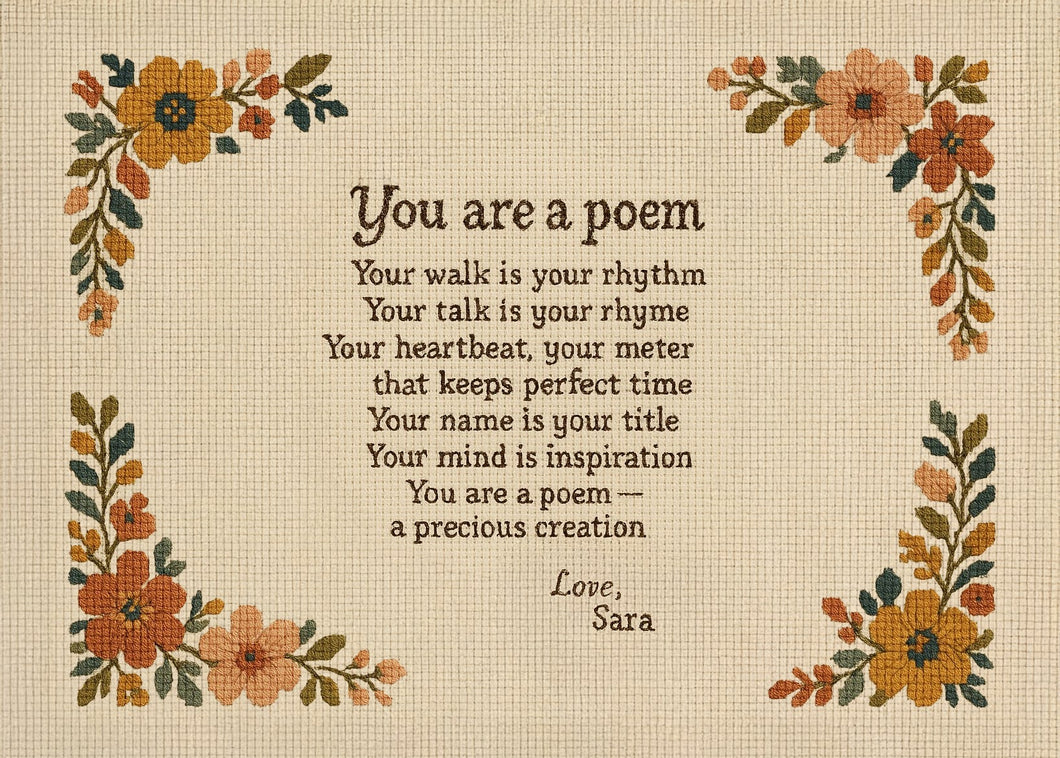 You are a poem
Your walk is your rhythm
Your talk is your rhyme
Your heartbeat, your meter
that keeps perfect time
Your name is your title
Your mind is inspiration
You are a poem —
a precious creation
Love,
Sara